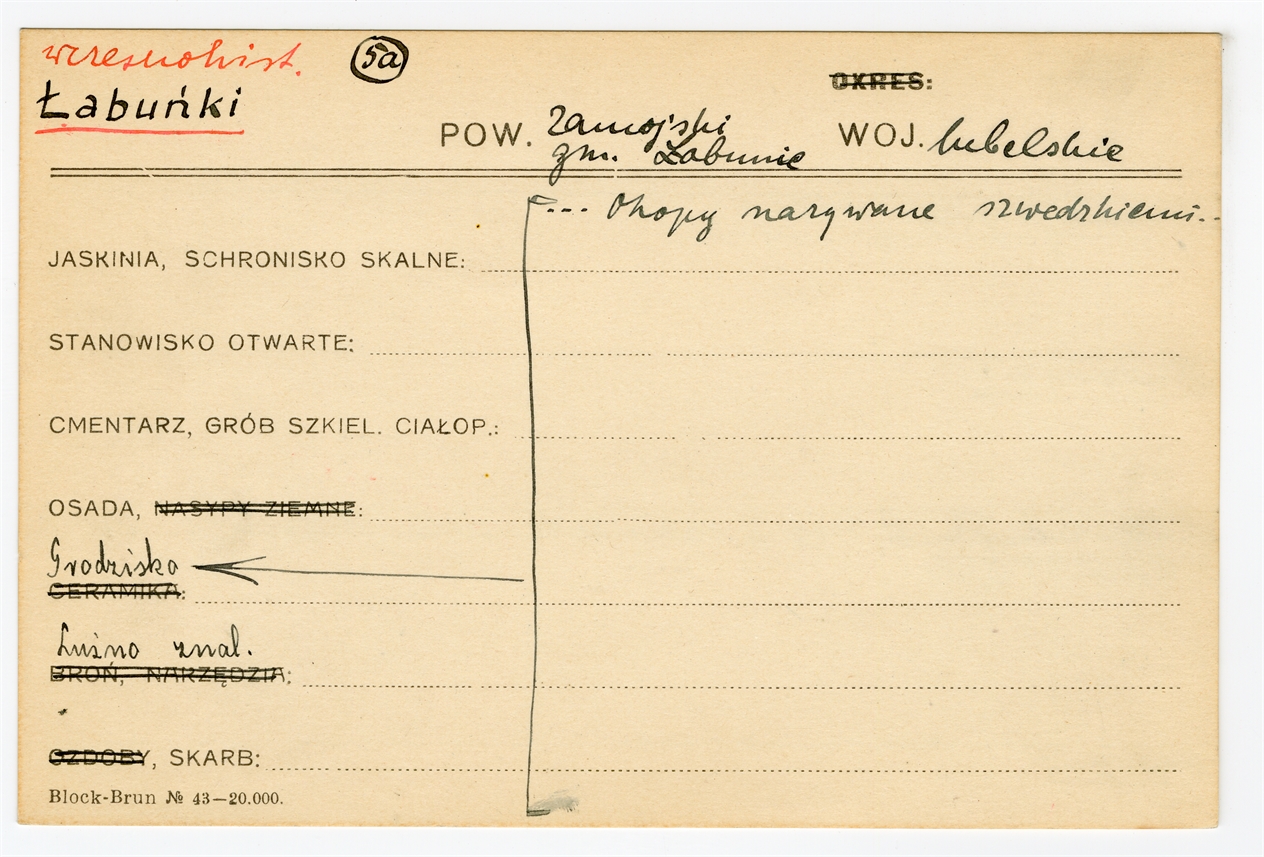 wczesnohist. 5a
Łabuńki
OKRES:
POW. Zamojski WOJ. lubelskie
gm. Łabunie
"... Okopy nazywane szwedzkiemi..
JASKINIA, SCHRONISKO SKALNE:
STANOWISKO OTWARTE:
CMENTARZ, GRÓB SZKIEL. CIAŁOP.:
OSADA, NASYPY ZIEMNE:
Grodzisko
CERAMIKA:
Luźno znal.
BROŃ, NARZĘDZIA:
OZDOBY, SKARB:
Block-Brun № 43—20.000.